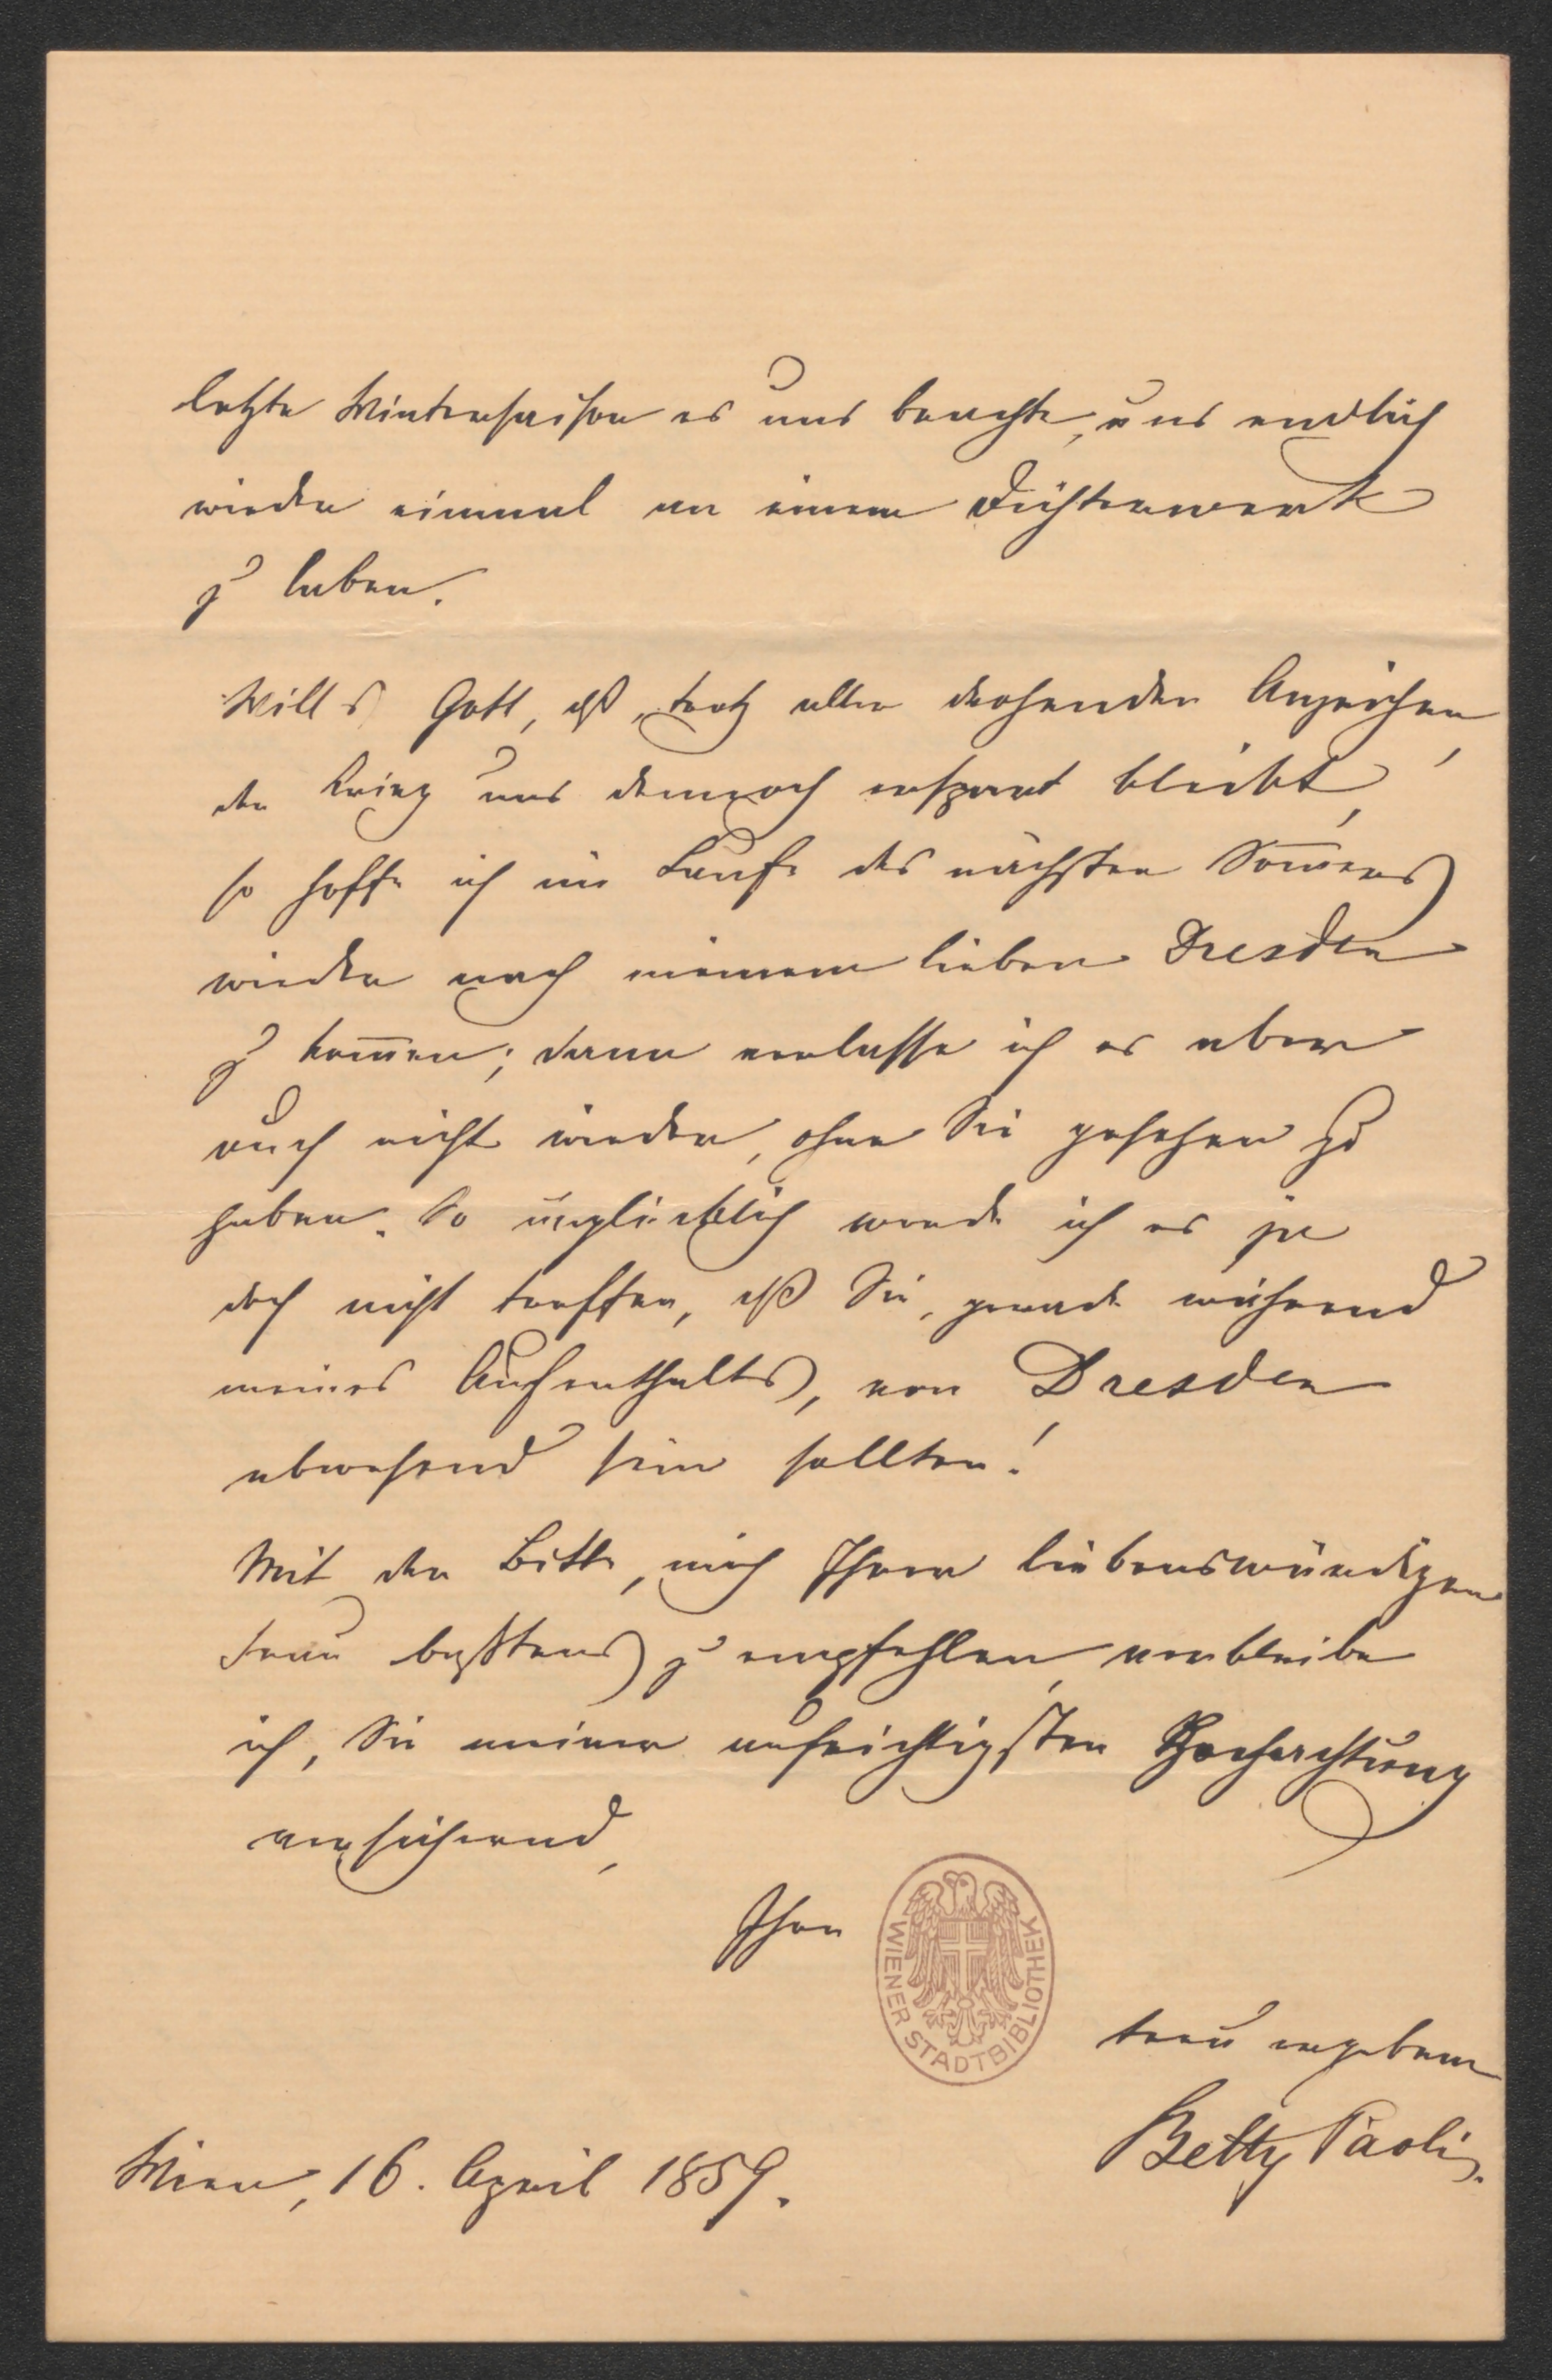 letzte Wintersaison es uns brachte, uns endlich
wieder einmal an einem Dichterwerk
zu laben.
Will's Gott, daß, trotz aller drohenden Anzeichen,
der Krieg uns dennoch erspart bleibt,
so hoffe ich im Laufe des nächsten Som̅ers
wieder nach meinem lieben Dresden
zu kom̅en; dann verlasse ich es aber
auch nicht wieder, ohne Sie gesehen zu
haben. So unglücklich werde ich es ja
doch nicht treffen, daß Sie, gerade während
meines Aufenthalts, von Dresden
abwesend sein sollten!
Mit der Bitte, mich Ihrer liebenswürdigen
Frau bestens zu empfehlen, verbleibe
ich, Sie meiner aufrichtigsten Hochachtung
versichernd,
Ihre
WIENER STADTBIBLIOTHEK
treu ergebene
Betty Paoli.
Wien, 16. April 1859.